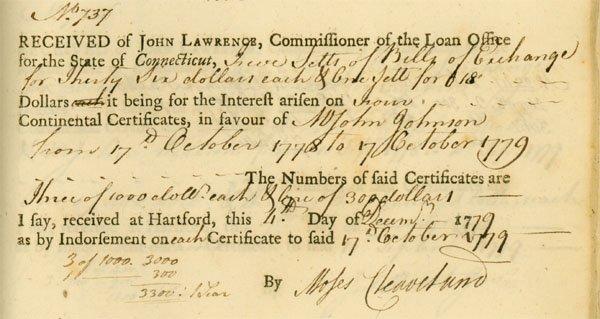 No. 737
RECEIVED of JOHN LAWRENCE, Commissioner of the Loan Office
for the State of Connecticut, Setts of Bills of Exchange
for Thirty Six dollars each & One Sett for 18
Dollars each it being for the Interest arisen on four
Continental Certificates, in favour of Mr John Johnson
from 17d October 1778 to 17 October 1779
The Numbers of said Certificates are
Three of 1000 doll. each & One of 300 dollars
I say, received at Hartford, this 4th Day of Decemr 1779
as by Indorsement on each Certificate to said 17d October 1779
3 of 1000. 3000
1 300
3300: 1 Year
By Moses Cleaveland